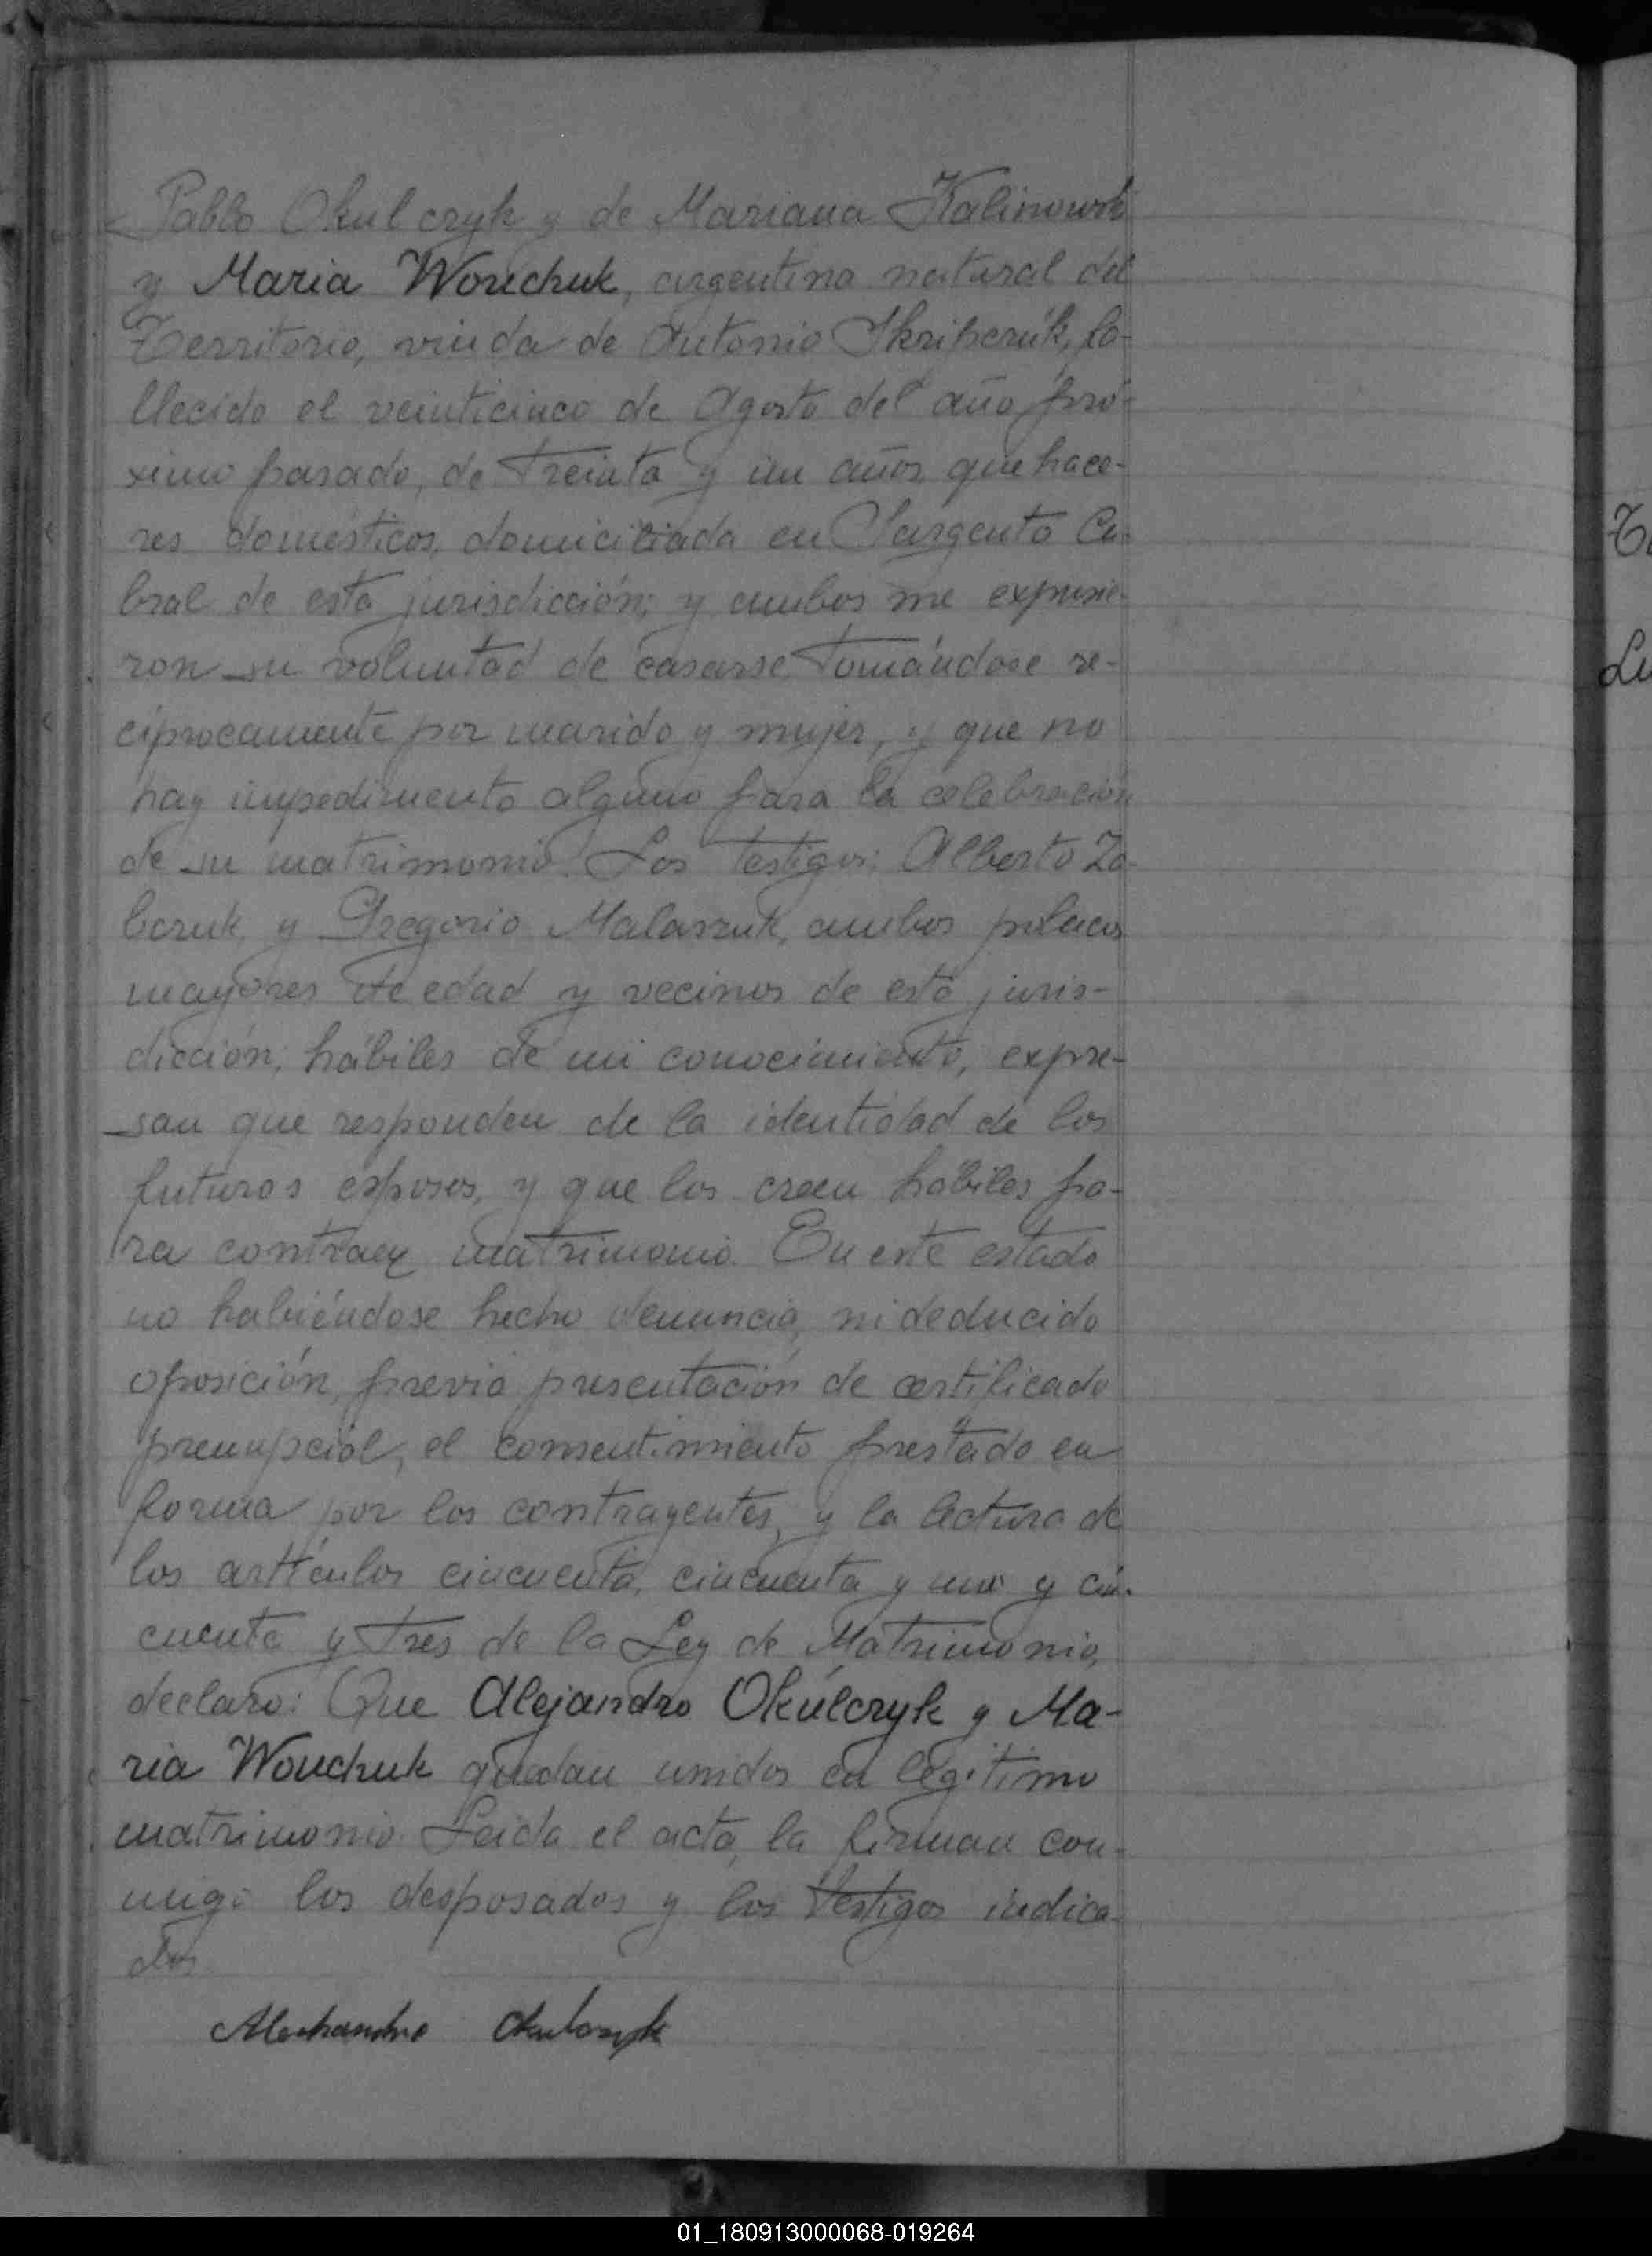 Pablo Okulczyk y de Mariana Kalinowsk
y Maria Wouchuk, argentina natural del
Territorio, viuda de Antonio Skripczuk, fa-
llecido el veinticinco de Agosto del año pró-
ximo pasado, de treinta y un años, quehace-
res domésticos, domiciliada en Sargento Ca-
bral de esta jurisdicción; y ambos me expusie-
ron su voluntad de casarse, tomándose re-
ciprocamente por marido y mujer, y que no
hay impedimento alguno para la celebración
de su matrimonio. Los testigos: Alberto Za-
bczuk y Gregorio Malaszuk, ambos polacos
mayores de edad y vecinos de esta juris-
dicción; hábiles de mi conocimiento, expre-
san que responden de la identidad de los
futuros esposos, y que los creen hábiles pa-
ra contraer matrimonio. En este estado
no habiéndose hecho denuncia, ni deducido
oposición, previa presentación de certificado
prenupcial, el consentimiento prestado en
forma por los contrayentes, y la lectura de
los artículos cincuenta, cincuenta y uno y cin-
cuenta y tres de la Ley de Matrimonio,
declaro: Que Alejandro Okúlczyk y Ma-
ria Wouchuk quedan unidos en legitimo
matrimonio. Leida el acta, la firman con-
migo los desposados y los testigos indica-
dos
Okulczyk
01_180913000068-019264